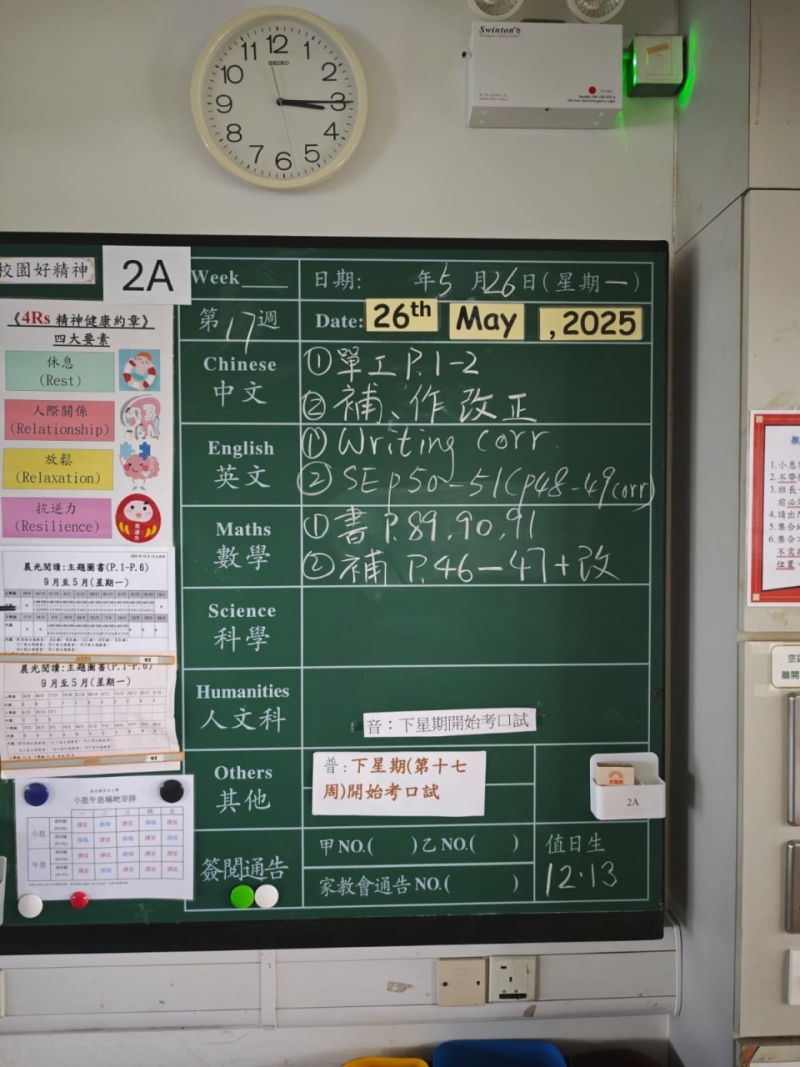 12
1
2
3
4
5
6
7
8
9
10
11
SEIKO
Swinton's
校園好精神
2A
《4Rs 精神健康約章》
四大要素
休息
(Rest)
人際關係
(Relationship)
放鬆
(Relaxation)
抗逆力
(Resilience)
晨光閱讀:主題圖書(P.1-P.6)
9月至5月(星期一)
晨光閱讀:主題圖書(P.1-P.6)
9月至5月(星期一)
2A
小息午息場地安排
一 二 三 四 五
小息
午息
Week
日期: 年5月26日(星期一)
第17週
Date: 26th May , 2025
Chinese
中文
①單工P.1-2
②補、作改正
English
英文
① Writing corr
② SE p50-51(p48-49corr)
Maths
數學
①書P.89,90,91
②補P.46-47+改
Science
科學
Humanities
人文科
音:下星期開始考口試
Others
其他
普:下星期(第十七
周)開始考口試
2A
簽閱通告
甲NO.( )乙NO.( )
家教會通告NO.( )
值日生
12.13
1.小息
2.不帶
3.班長
前必
4.請出
5.集合
6.集合
不需
位置
空
離開